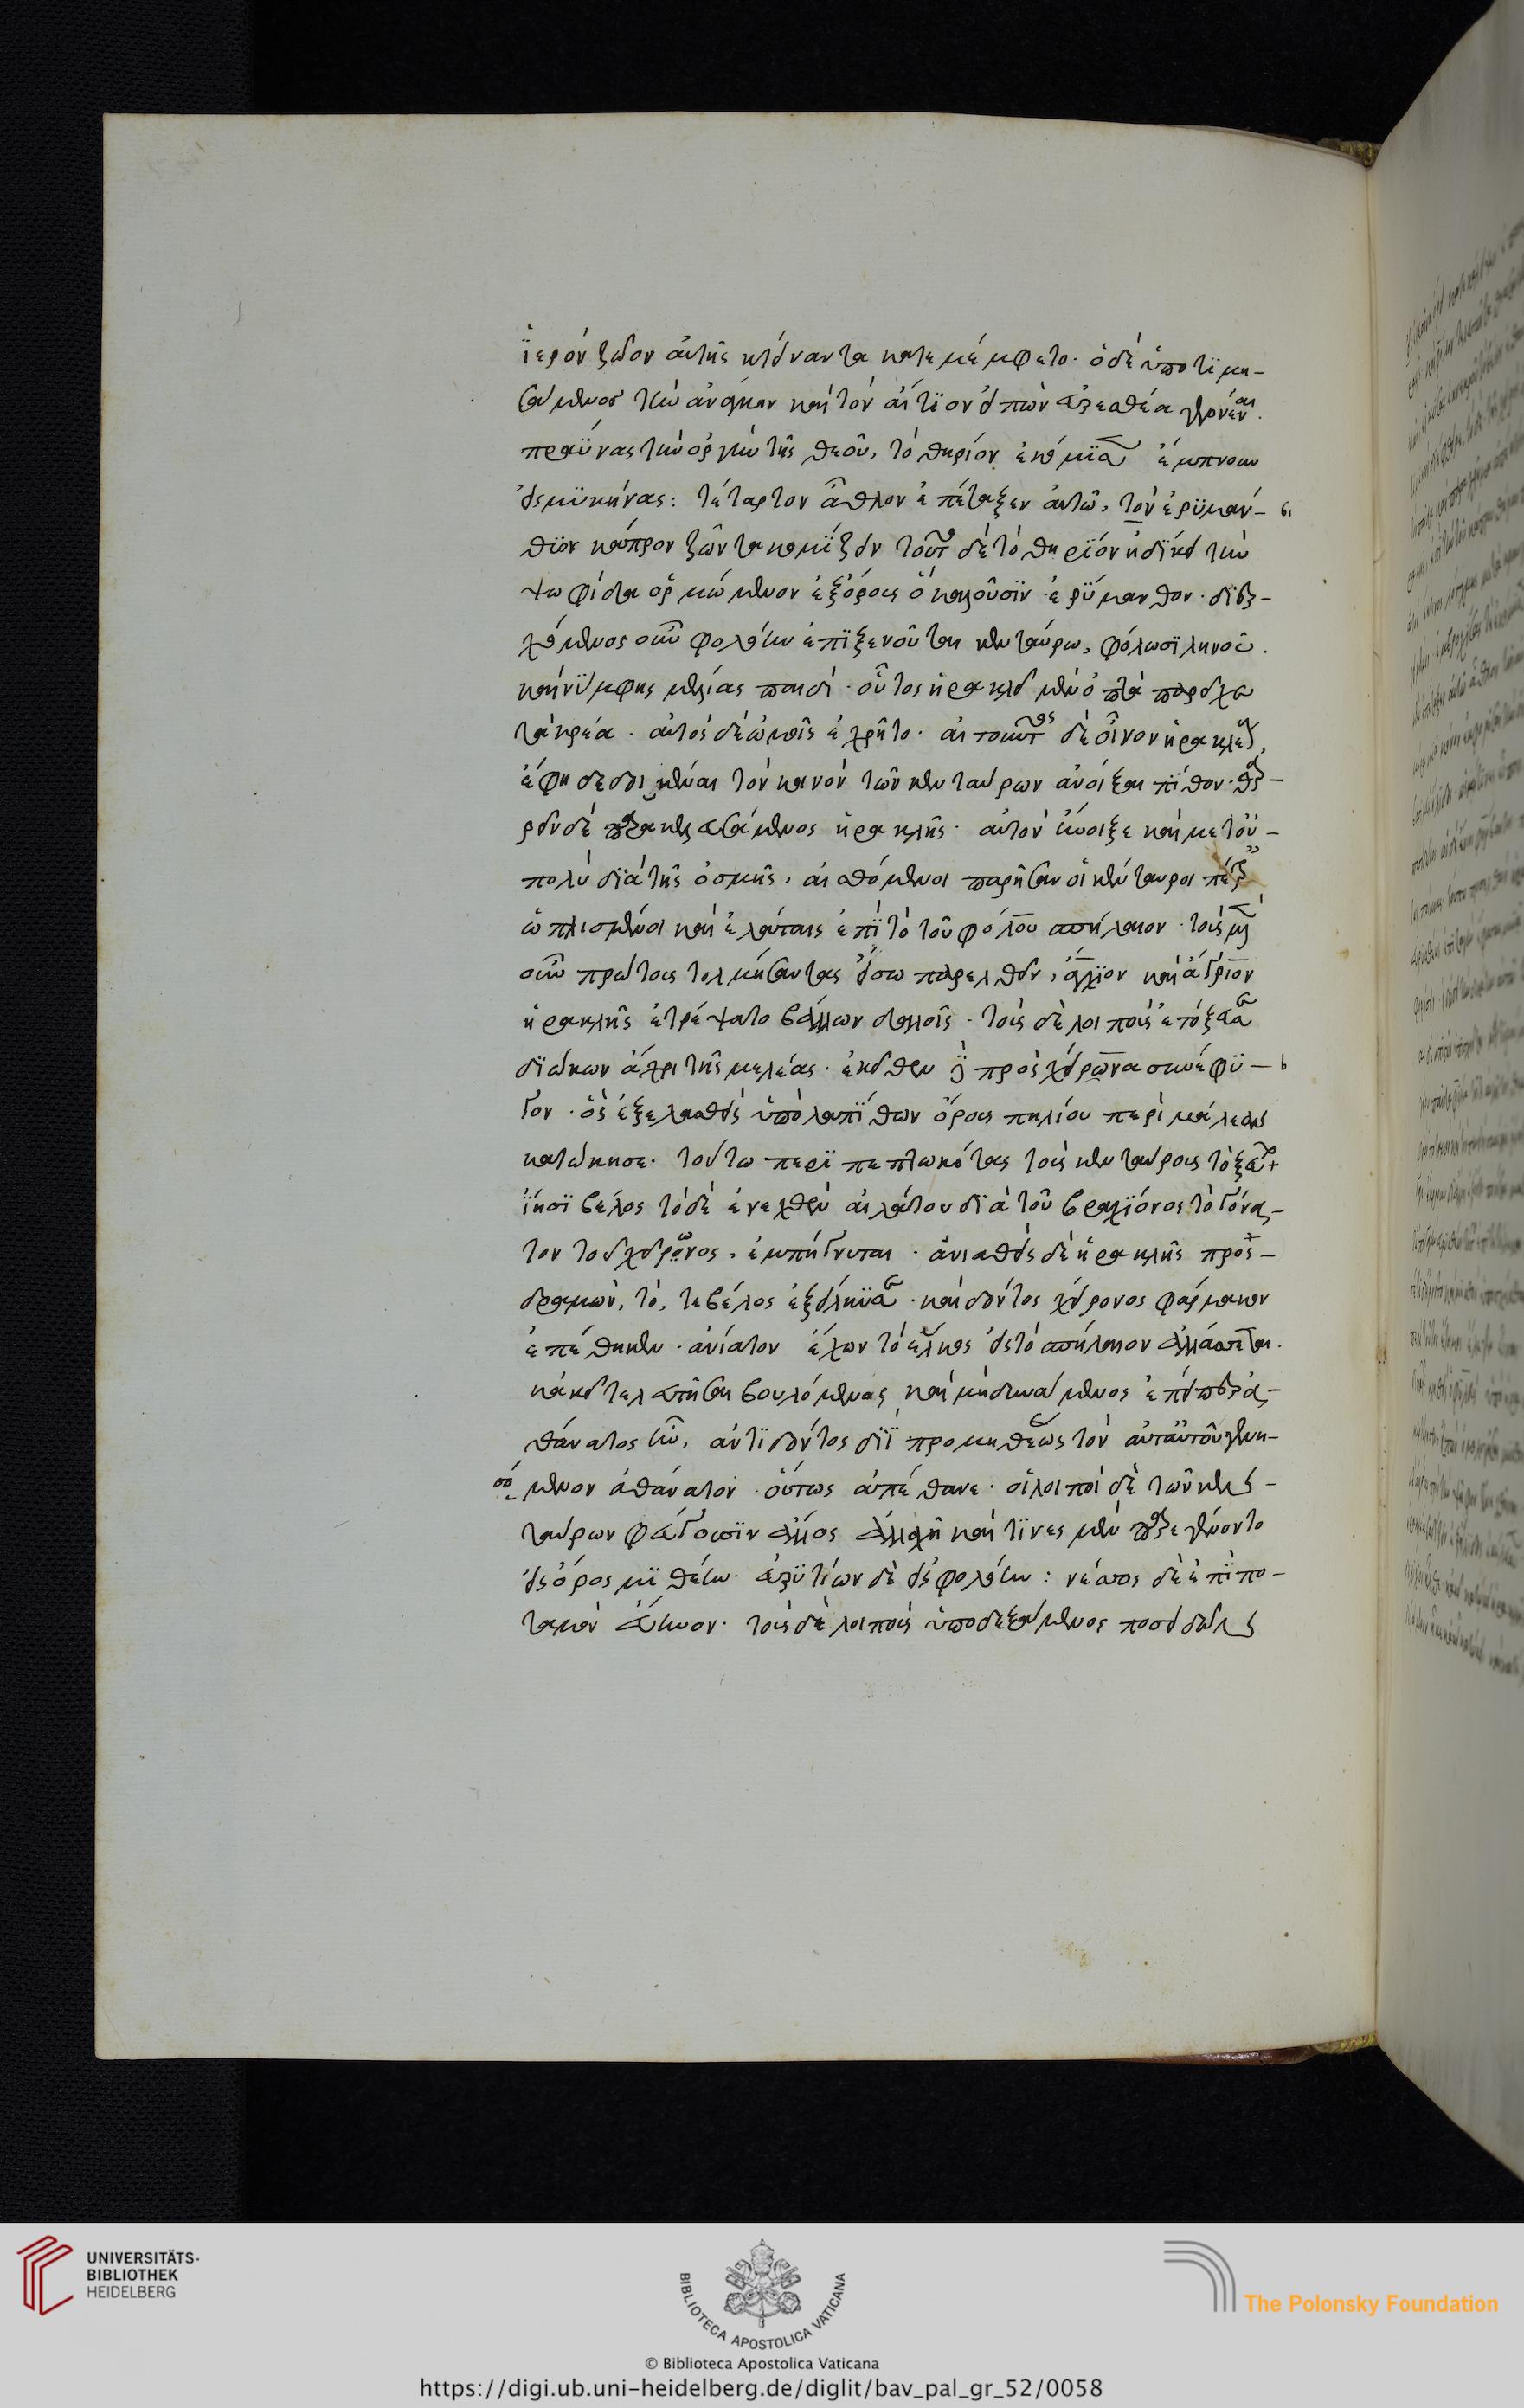 ἱερὸν ζῶον αὐτῆς κτείναντα κατεμέμφετο. ὁ δὲ ὑποτιμη-
σάμενος τὴν ἀνάγκην καὶ τὸν αἴτιον εἰπὼν εὐρυσθέα γεγονέναι.
πραΰνας τὴν ὀργὴν τῆς θεοῦ, τὸ θηρίον ἐκόμισεν ἔμπνουν
εἰς μυκήνας: τέταρτον ἆθλον ἐπέταξεν αὐτῶ, τὸν ἐρυμάν-
θιον κάπρον ζῶντα κομίζειν τοῦτο δὲ τὸ θηρίον ἠδίκει τὴν
ψωφίδα ὁρμώμενον ἐξ ὄρους ὃ καλοῦσιν ἐρύμανθον. διερ-
χόμενος οὖν φολόην ἐπιξενοῦται κενταύρω, φόλω σιληνοῦ.
καὶ νύμφης μελίας παιδί. οὗτος ἡρακλεῖ μὲν ὀπτὰ παρεῖχε
τὰ κρέα. αὐτὸς δὲ ὠμοῖς ἐχρῆτο. αἰτοῦντος δὲ οἶνον ἡρακλέους,
ἔφη δεδοικέναι τὸν κοινὸν τῶν κενταύρων ἀνοῖξαι πίθον. θαρ-
ρεῖν δὲ παρακελευσάμενος ἡρακλῆς. αὐτὸν ἤνοιξε καὶ μετ' οὐ-
πολὺ διὰ τῆς ὀσμῆς, αἰσθόμενοι παρῆσαν οἱ κένταυροι πέτραις
ὡπλισμένοι καὶ ἐλάταις ἐπὶ τὸ τοῦ φόλου σπήλαιον. τοὺς μὲν
οὖν πρώτους τολμήσαντας εἴσω παρελθεῖν, ἄγχιον καὶ ἄγριον
ἡρακλῆς ἐτρέψατο βάλλων δαλοῖς. τοὺς δὲ λοιποὺς ἐτόξευσε
διώκων ἄχρι τῆς μελέας. ἐκεῖθεν δὲ πρὸς χείρωνα συνέφυ-
γον. ὃς ἐξελασθεὶς ὑπὸ λαπίθων ὄρους πηλίου περὶ μάλεαν
κατώκησε. τούτω περιπεπτωκότας τοὺς κενταύρους τοξεύων
ἵησι βέλος τὸ δὲ ἐνεχθὲν αἰλάτου διὰ τοῦ βραχίονος τὸ γόνα-
τον τοῦ χείρωνος, ἐμπήγνυται. ἀνιαθεὶς δὲ ἡρακλῆς προς-
δραμὼν, τό, τε βέλος ἐξείλκυσε. καὶ δόντος χείρονος φάρμακον
ἐπέθηκεν. ἀνίατον ἔχων τὸ ἕλκος εἰς τὸ σπήλαιον ἀλλάσσεται.
κἀκεῖ τελευτῆσαι βουλόμενος, καὶ μὴ δυνάμενος ἐπείπερ ἀ-
θάνατος ἦν, ἀντιδόντος διῒ προμηθέως τὸν αὐτ' αὐτοῦ γενη-
σό μενον ἀθάνατον. οὕτως ἀπέθανε. οἱ λοιποὶ δὲ τῶν κεν-
ταύρων φεύγουσιν ἄλλος ἀλλαχῆ καὶ τινὲς μὲν παρεγένοντο
εἰς ὄρος μιθέαν. εὐρυτίων δὲ εἰς φολόην: νέσσος δὲ ἐπὶ πο-
ταμὸν εὔηνον. τοὺς δὲ λοιποὺς ὑποδεξάμενος ποσειδῶν εἰς
UNIVERSITÄTS-
BIBLIOTHEK
HEIDELBERG
BIBLIOTECA APOSTOLICA VATICANA
The Polonsky Foundation
© Biblioteca Apostolica Vaticana
https://digi.ub.uni-heidelberg.de/diglit/bav_pal_gr_52/0058